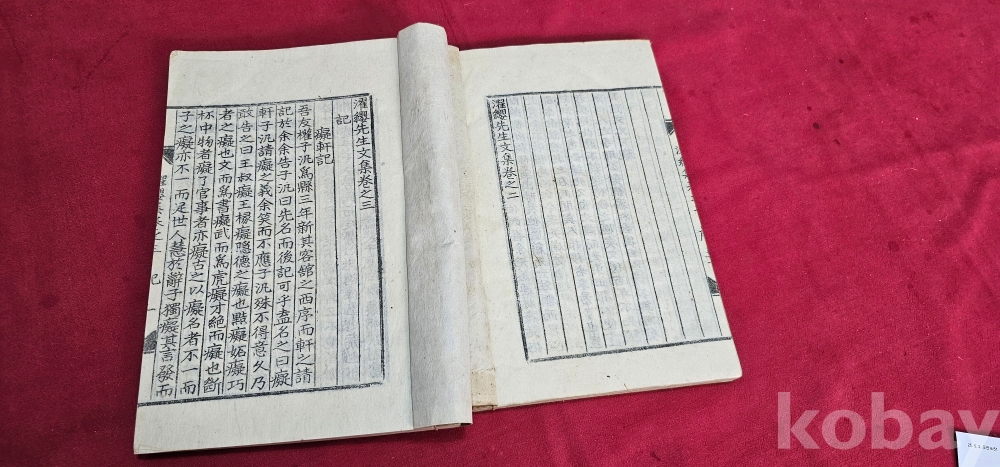 濯纓先生文集卷之二
濯纓先生文集卷之三
記
癡軒記
吾友權子汎爲縣三年新其客舘之西序而軒之請
記於余余告子汎曰先名而後記可乎盍名之曰癡
軒子汎請癡之義余笑而不應子汎殊不得意久乃
敢告之曰王叔癡王掾癡隱德之癡也黠癡姤癡巧
者之癡也文而爲書癡武而爲虎癡才絶而癡也斷
杯中物者癡了官事者亦癡古之以癡名者不一而
子之癡亦不一而足世人慧於辭子獨癡其言發而
記
一
kobay